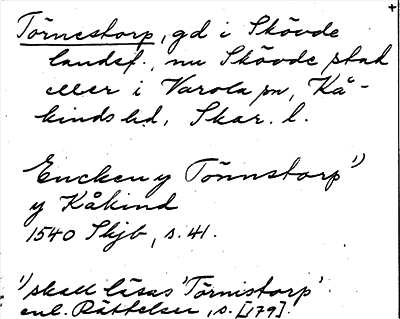 Törnestorp, gd i Skövde
landsf., nu Skövde stad
eller i Varola sn, Kå-
kinds hd, Skar. l.
Encken y Tönnstorp¹⁾
y Kåkind
1540 Skjb, s. 41.
¹⁾ skall läsas 'Törnistorp'
enl. Rättelser, s. [179].